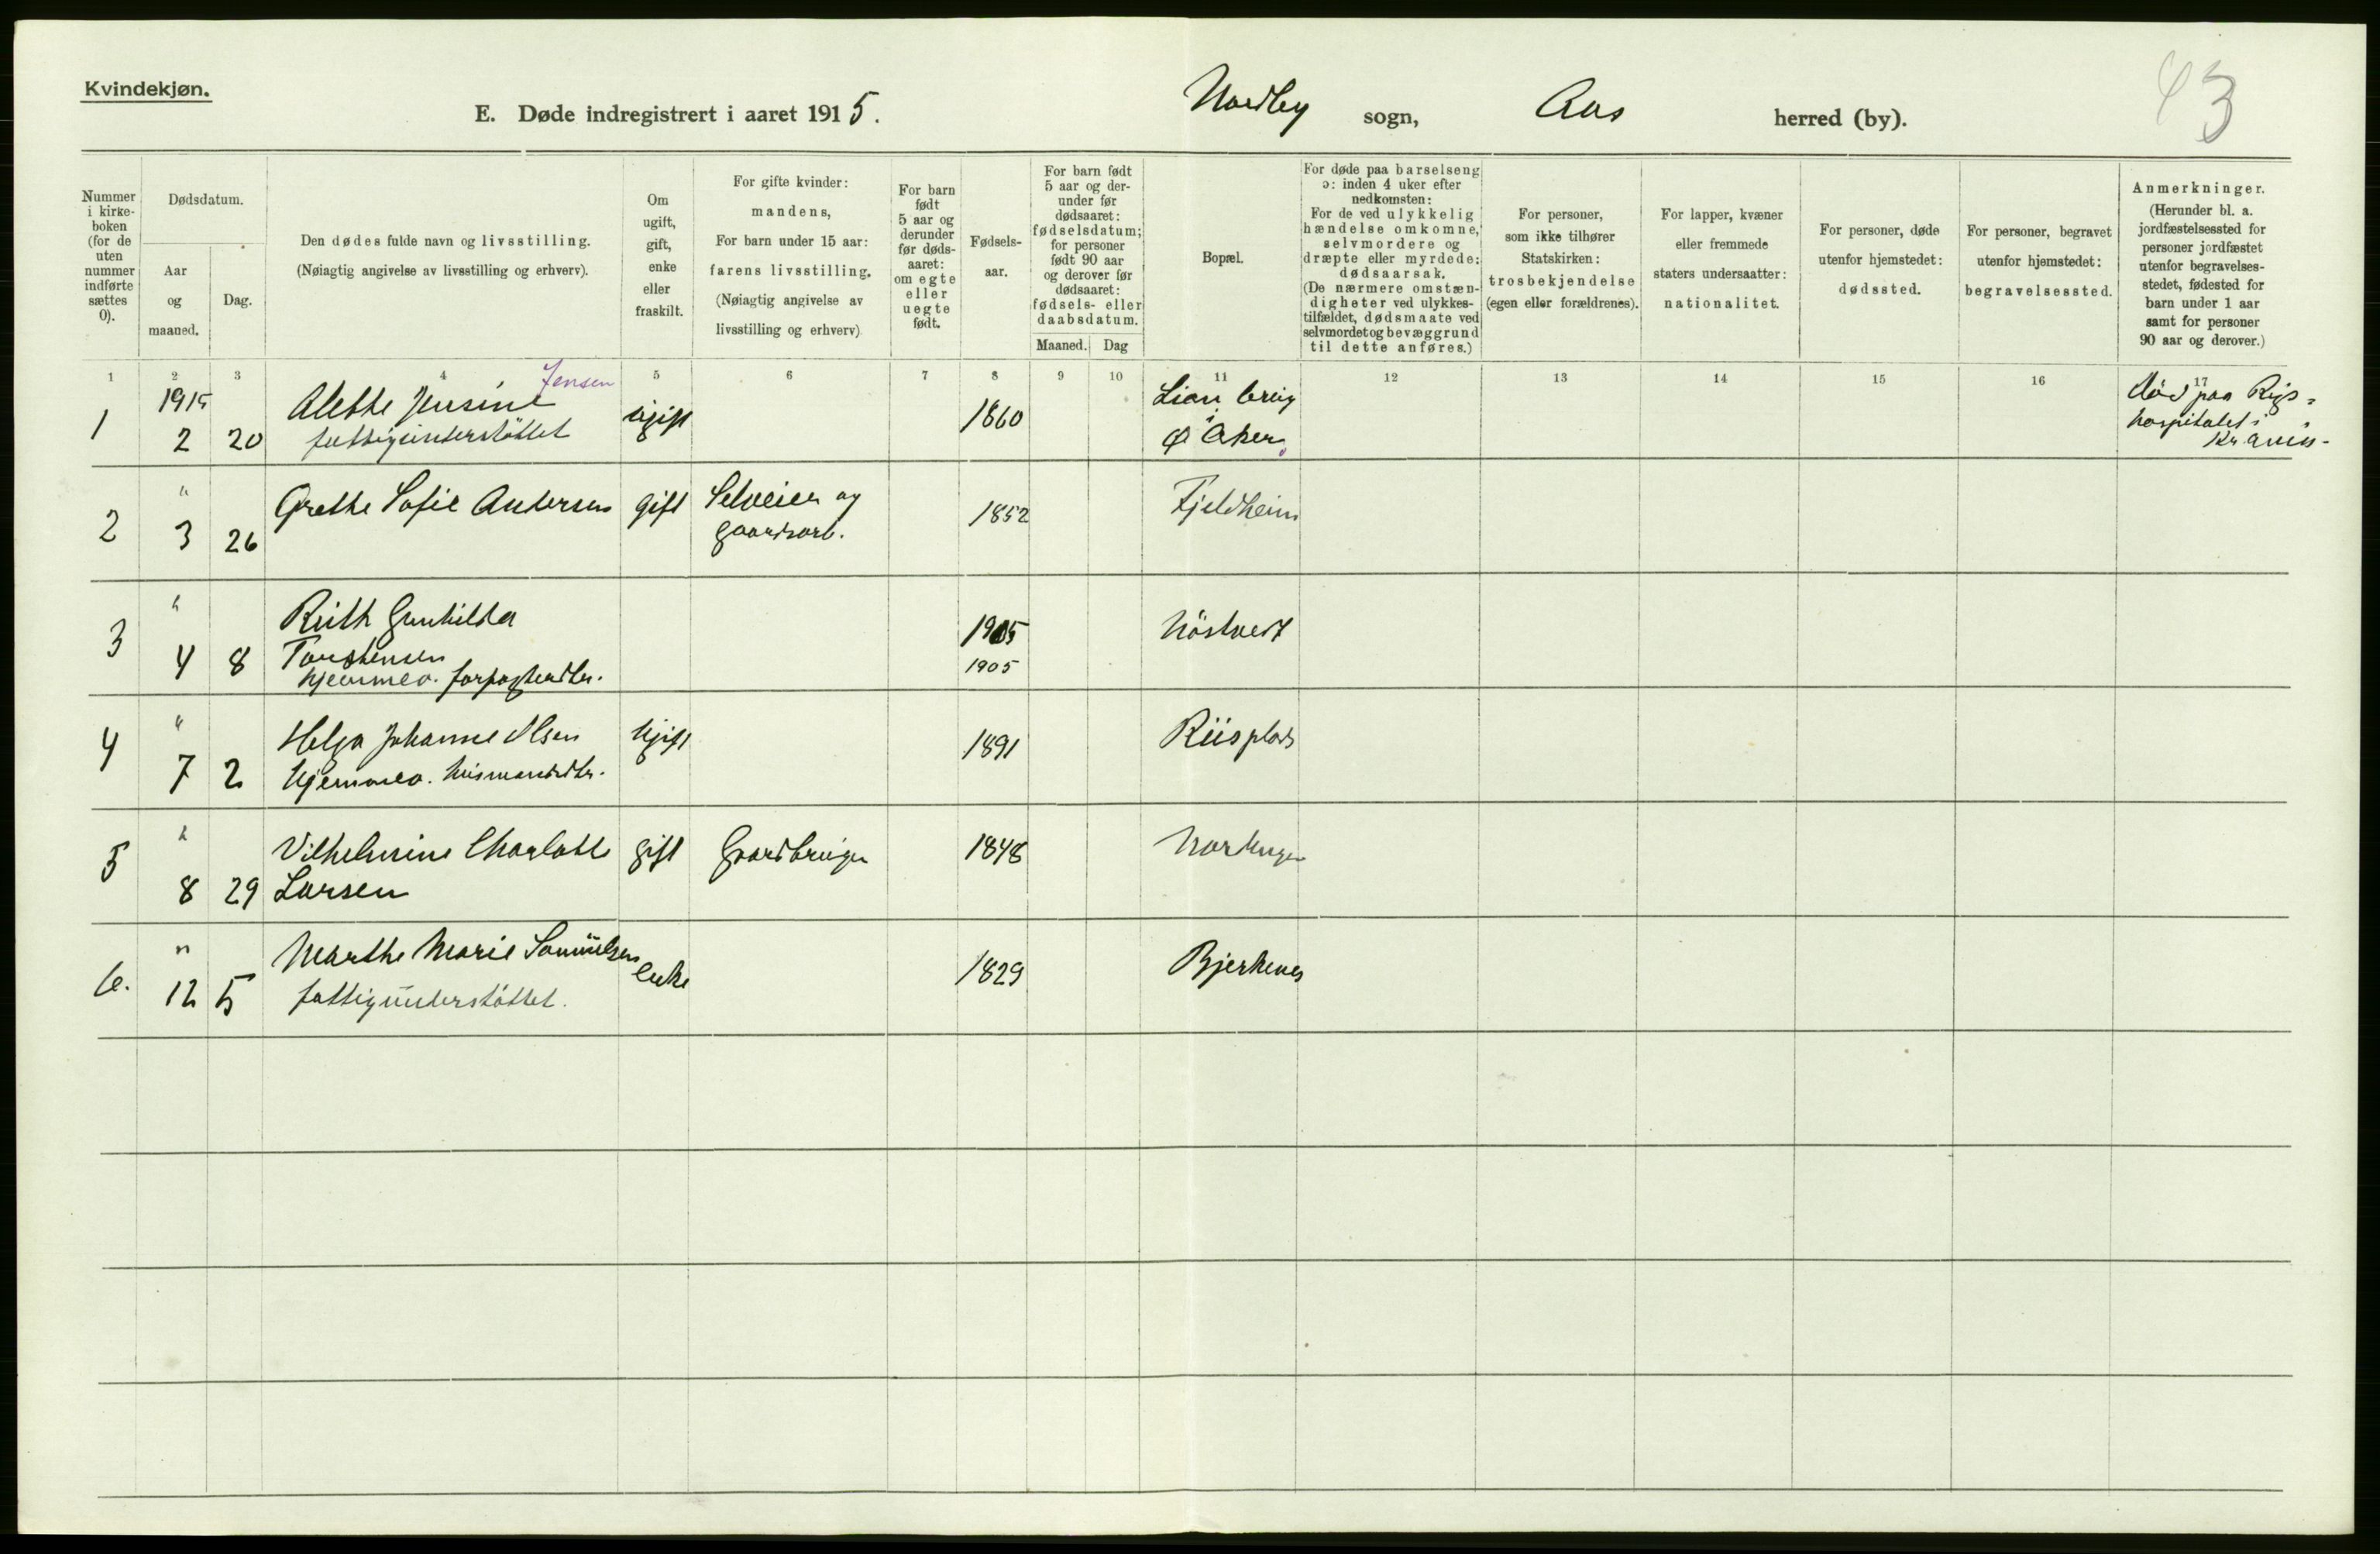 Kvindekjøn.
E. Døde indregistrert i aaret 1915. Nordby sogn, Aas herred (by).
43
Nummer i kirke-boken (for de uten nummer indførte sættes 0).
Dødsdatum.
Aar og maaned.
Dag.
Den dødes fulde navn og livsstilling.
(Nøiagtig angivelse av livsstilling og erhverv).
Om ugift, gift, enke eller fraskilt.
For gifte kvinder: mandens,
For barn under 15 aar: farens livsstilling.
(Nøiagtig angivelse av livsstilling og erhverv)
For barn født 5 aar og derunder før døds-aaret: om egte eller uegte født.
Fødsels-aar.
For barn født 5 aar og der-under før dødsaaret: fødselsdatum; for personer født 90 aar og derover før dødsaaret: fødsels- eller daabsdatum.
Maaned. Dag
Bopæl.
For døde paa barselseng ɔ: inden 4 uker efter nedkomsten:
For de ved ulykkelig hændelse omkomne, selvmordere og dræpte eller myrdede: dødsaarsak.
(De nærmere omstæn-digheter ved ulykkes-tilfældet, dødsmaate ved selvmordet og bevæggrund til dette anføres.)
For personer, som ikke tilhører Statskirken: trosbekjendelse (egen eller forældrenes).
For lapper, kvæner eller fremmede staters undersaatter: nationalitet.
For personer, døde utenfor hjemstedet: dødssted.
For personer, begravet utenfor hjemstedet: begravelsessted.
Anmerkninger.
(Herunder bl. a. jordfæstelsessted for personer jordfæstet utenfor begravelses-stedet, fødested for barn under 1 aar samt for personer 90 aar og derover.)
1 2 3 4 5 6 7 8 9 10 11 12 13 14 15 16 17
1 1915 2 20 Alette Jensine Jensen
fattigunderstöttet ugift 1860 Lian brug
i Ø Aker
död paa Rigs=
hospitalet i
Kr.ania-
2 " 3 26 Grethe Sofie Andersen gift Selveier og
gaardsarb. 1852 Fjeldheim
3 " 4 8 Ruth Gunhilda
Torstensen
hjemmev. forpagterdtr. 1905
1905 Höstvedt
4 " 7 2 Helga Johanne Olsen
hjemmev. husmandsdtr. ugift 1891 Riisplads
5 " 8 29 Vilhelmine Charlotte
Larsen gift Gaardbruger 1848
6. " 12 5 Marthe Marie Samuelsen
fattigunderstöttet. enke 1829 Bjerkenes